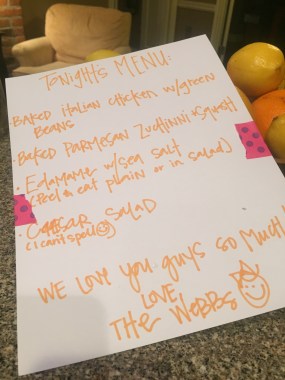 Tonights MENU:
BAKED italian chicken w/green
BEANS
· BAKED PARMESAN Zucchinni & Squash
· Edamame w/sea salt
(Peel & eat plain or in salad)
· CAESAR SALAD
(I can't spell)
WE LOVE you guys so Much!
LOVE,
THE WEBBS